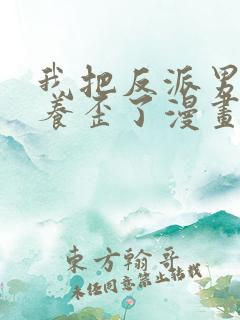 我把反派男
养歪了漫畫
東方翰哥
未任同意禁止转载